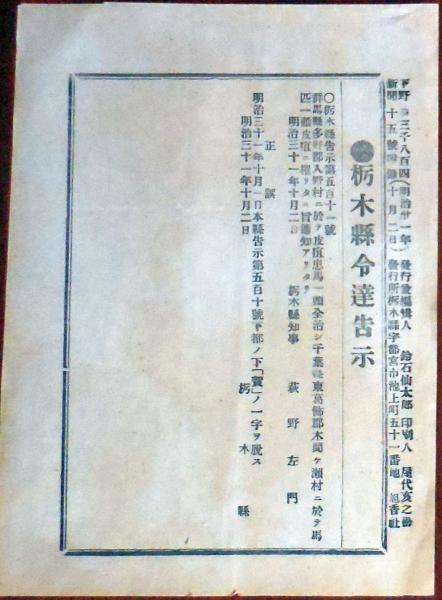 下野新聞 第三千八百四十五號附錄 (明治卅一年十月二日) 發行兼編輯人 鈴石仙太郎 印刷人 屋代亥之
發行所栃木縣宇都宮市池上町五十一番地 旭香社
栃木縣令達告示
〇栃木縣告示第五百十一號
群馬縣多野郡入野村ニ於テ皮疽患馬一頭全治シ千葉縣東葛飾郡木間ケ瀬村ニ於テ馬
匹一頭皮疽ニ罹リタル旨通知アリタリ
明治三十一年十月二日 栃木縣知事 萩野左門
正誤
明治三十一年十月一日本縣告示第五百十號下都ノ下「賀」ノ一字ヲ脱ス
明治三十一年十月二日 栃木縣